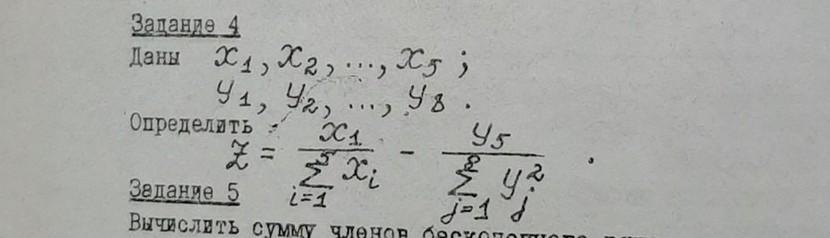 Задание 4
Даны x₁, x₂, ..., x₅ ;
y₁, y₂, ..., y₈ .
Определить
z = x₁ / ∑_{i=1}^{5} xᵢ − y₅ / ∑_{j=1}^{8} yⱼ² .
Задание 5
Вычислить сумму членов бесконечного